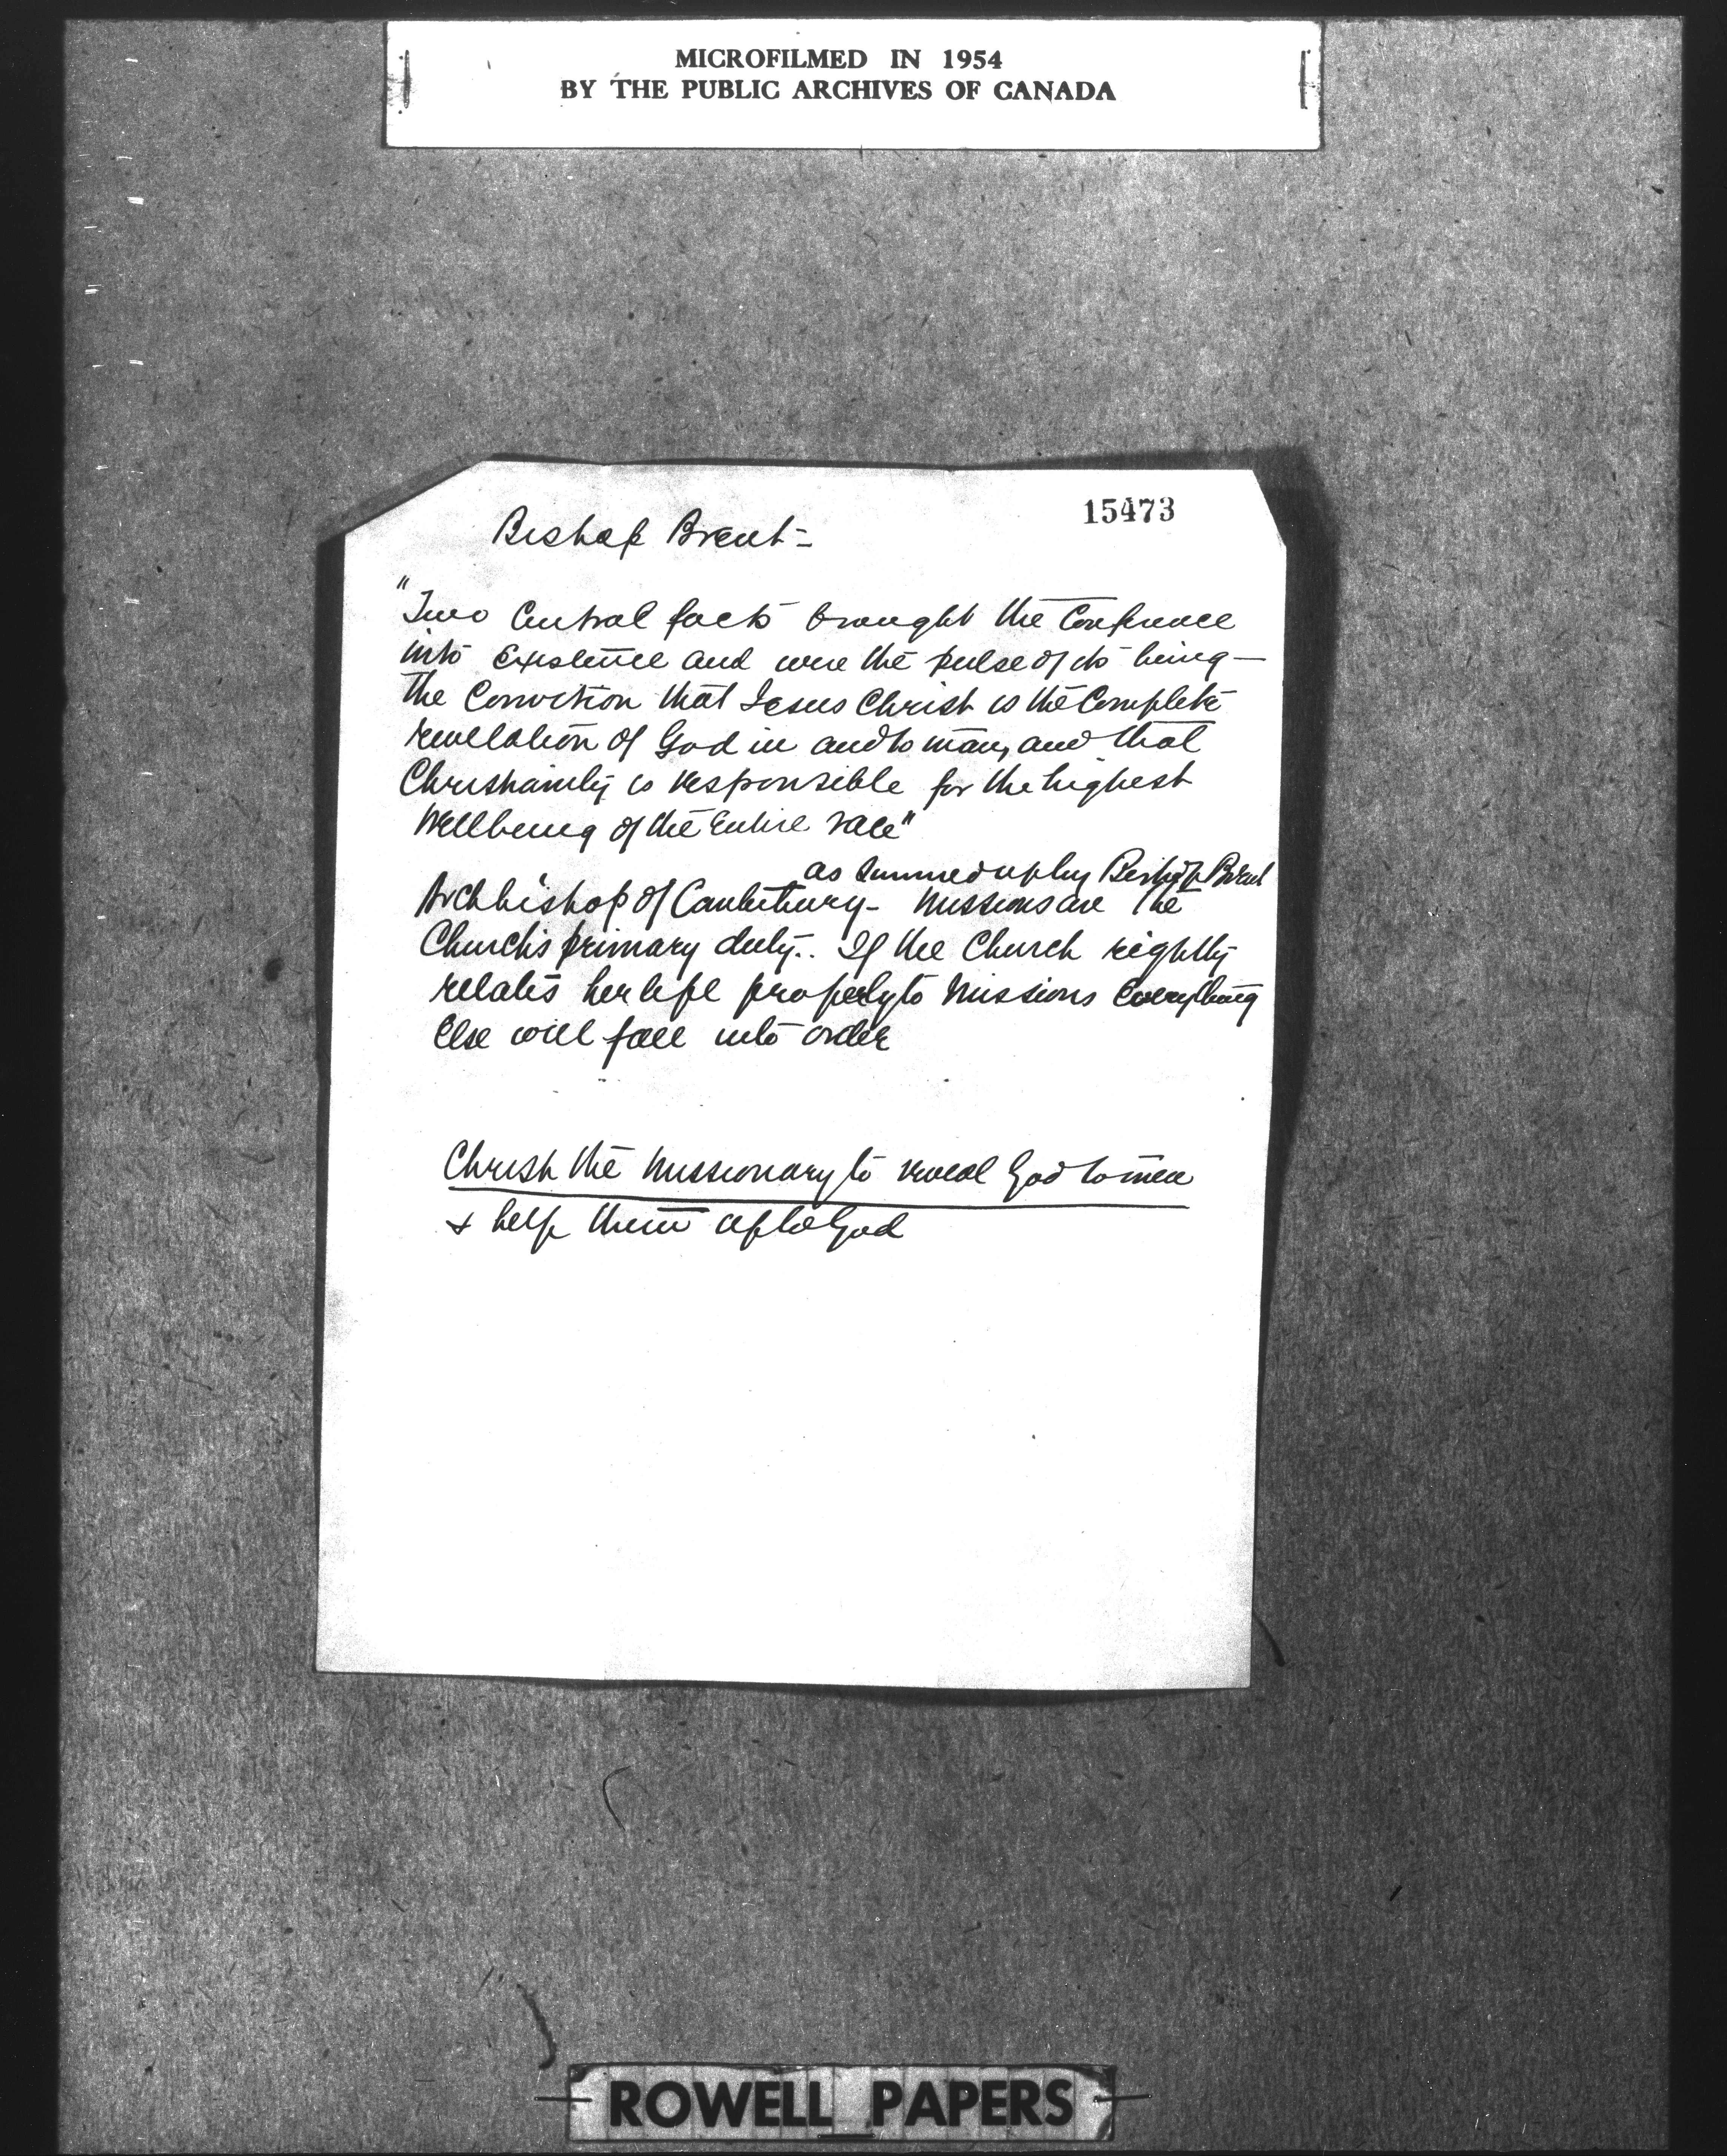 MICROFILMED IN 1954
BY THE PUBLIC ARCHIVES OF CANADA
15473
Bishop Brent -
"Two Central facts brought the Conference
into Existence and were the pulse of its being —
the Conviction that Jesus Christ is the Complete
revelation of God in and to man, and that
Christianity is responsible for the highest
Wellbeing of the Entire race"
as summed up by Bishop Brent
Archbishop of Canterbury - Missions are the
Church's primary duty.. If the Church rightly
relates her life properly to Missions Everything
Else will fall into order
Christ the Missionary to reveal God to men
& help them up to God
ROWELL PAPERS